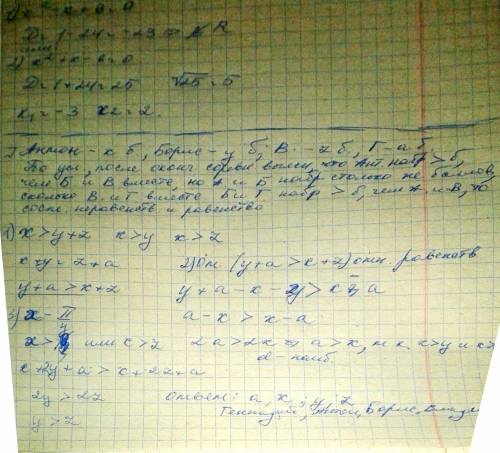 D = 1 - 24 = -23 ⇒ ∉ R
2) x² + x - 6 = 0
D = 1 + 24 = 25 √25 = 5
x₁ = -3 x₂ = 2.
Антон - x б, Борис - y б, В. - z б, Г - a б.
По усл, после оконч. что Ант. набр > б,
чем Б и В вместе, но А и Б набр столько же баллов,
сколько В. и Г вместе Б и Г набр > б, чем А и В, то
сост. неравенств и равенство
1) x > y + z x > y x > z
x + y = z + a 2) От (y + a > x + z) отн. равенств
y + a > x + z y + a - x - y > x + z - z - a
3) x - II a - x > x - a
x > y или x > z 2a > 2x ⇒ a > x, т.к. x > y и x > z
a - наиб.
x + 2y + a > x + 2z + a
2y > 2z ответ: a, x, y, z
y > z Геннадий, Антон, Борис,